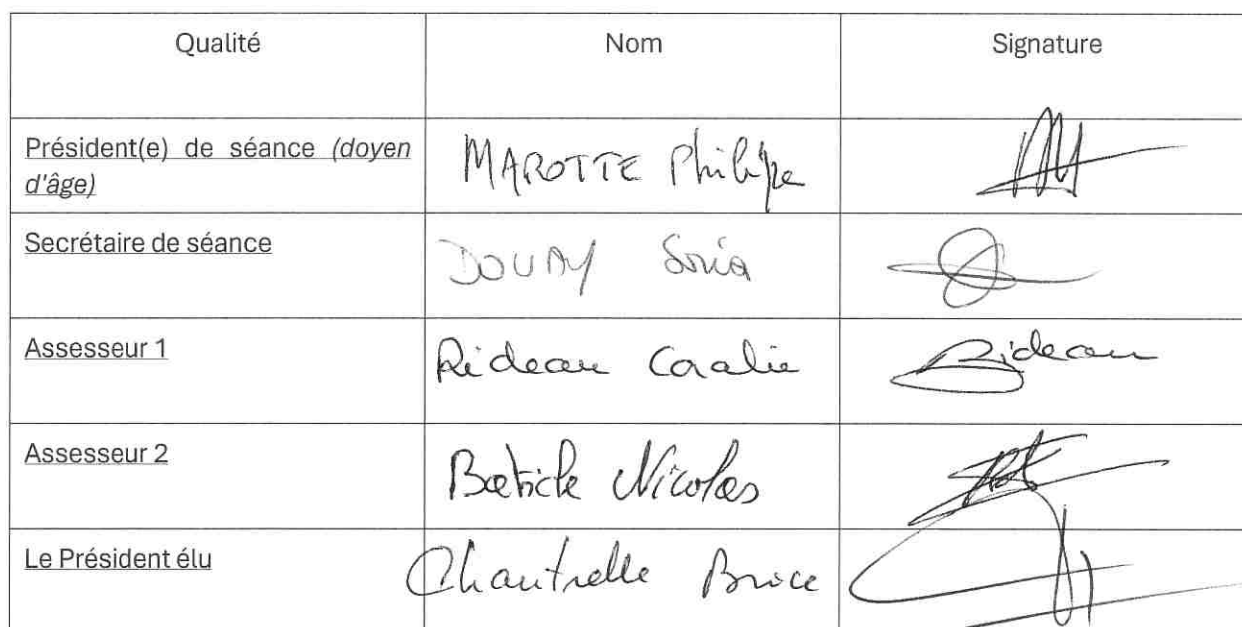 Qualité Nom Signature
Président(e) de séance (doyen
d'âge)
MAROTTE Philippe
Secrétaire de séance DOUAY Sonia
Assesseur 1 Rideau Coralie Rideau
Assesseur 2 Nicolas
Le Président élu Chantrelle Brice